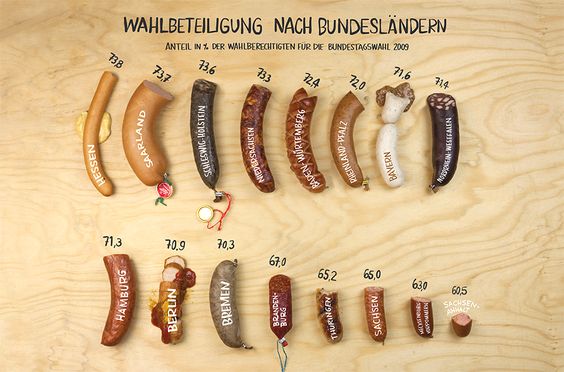 WAHLBETEILIGUNG NACH BUNDESLÄNDERN
ANTEIL IN % DER WAHLBERECHTIGTEN FÜR DIE BUNDESTAGSWAHL 2009
73,8
HESSEN
73,7
SAARLAND
73,6
SCHLESWIG-HOLSTEIN
73,3
NIEDERSACHSEN
72,4
BADEN-WÜRTEMBERG
72,0
RHEINLAND-PFALZ
71,6
BAYERN
71,4
NORDRHEIN-WESTFALEN
71,3
HAMBURG
70,9
BERLIN
70,3
BREMEN
67,0
BRANDEN-
BURG
65,2
THÜRINGEN
65,0
SACHSEN
63,0
MECKLENBURG-
VORPOMMERN
60,5
SACHSEN-
ANHALT